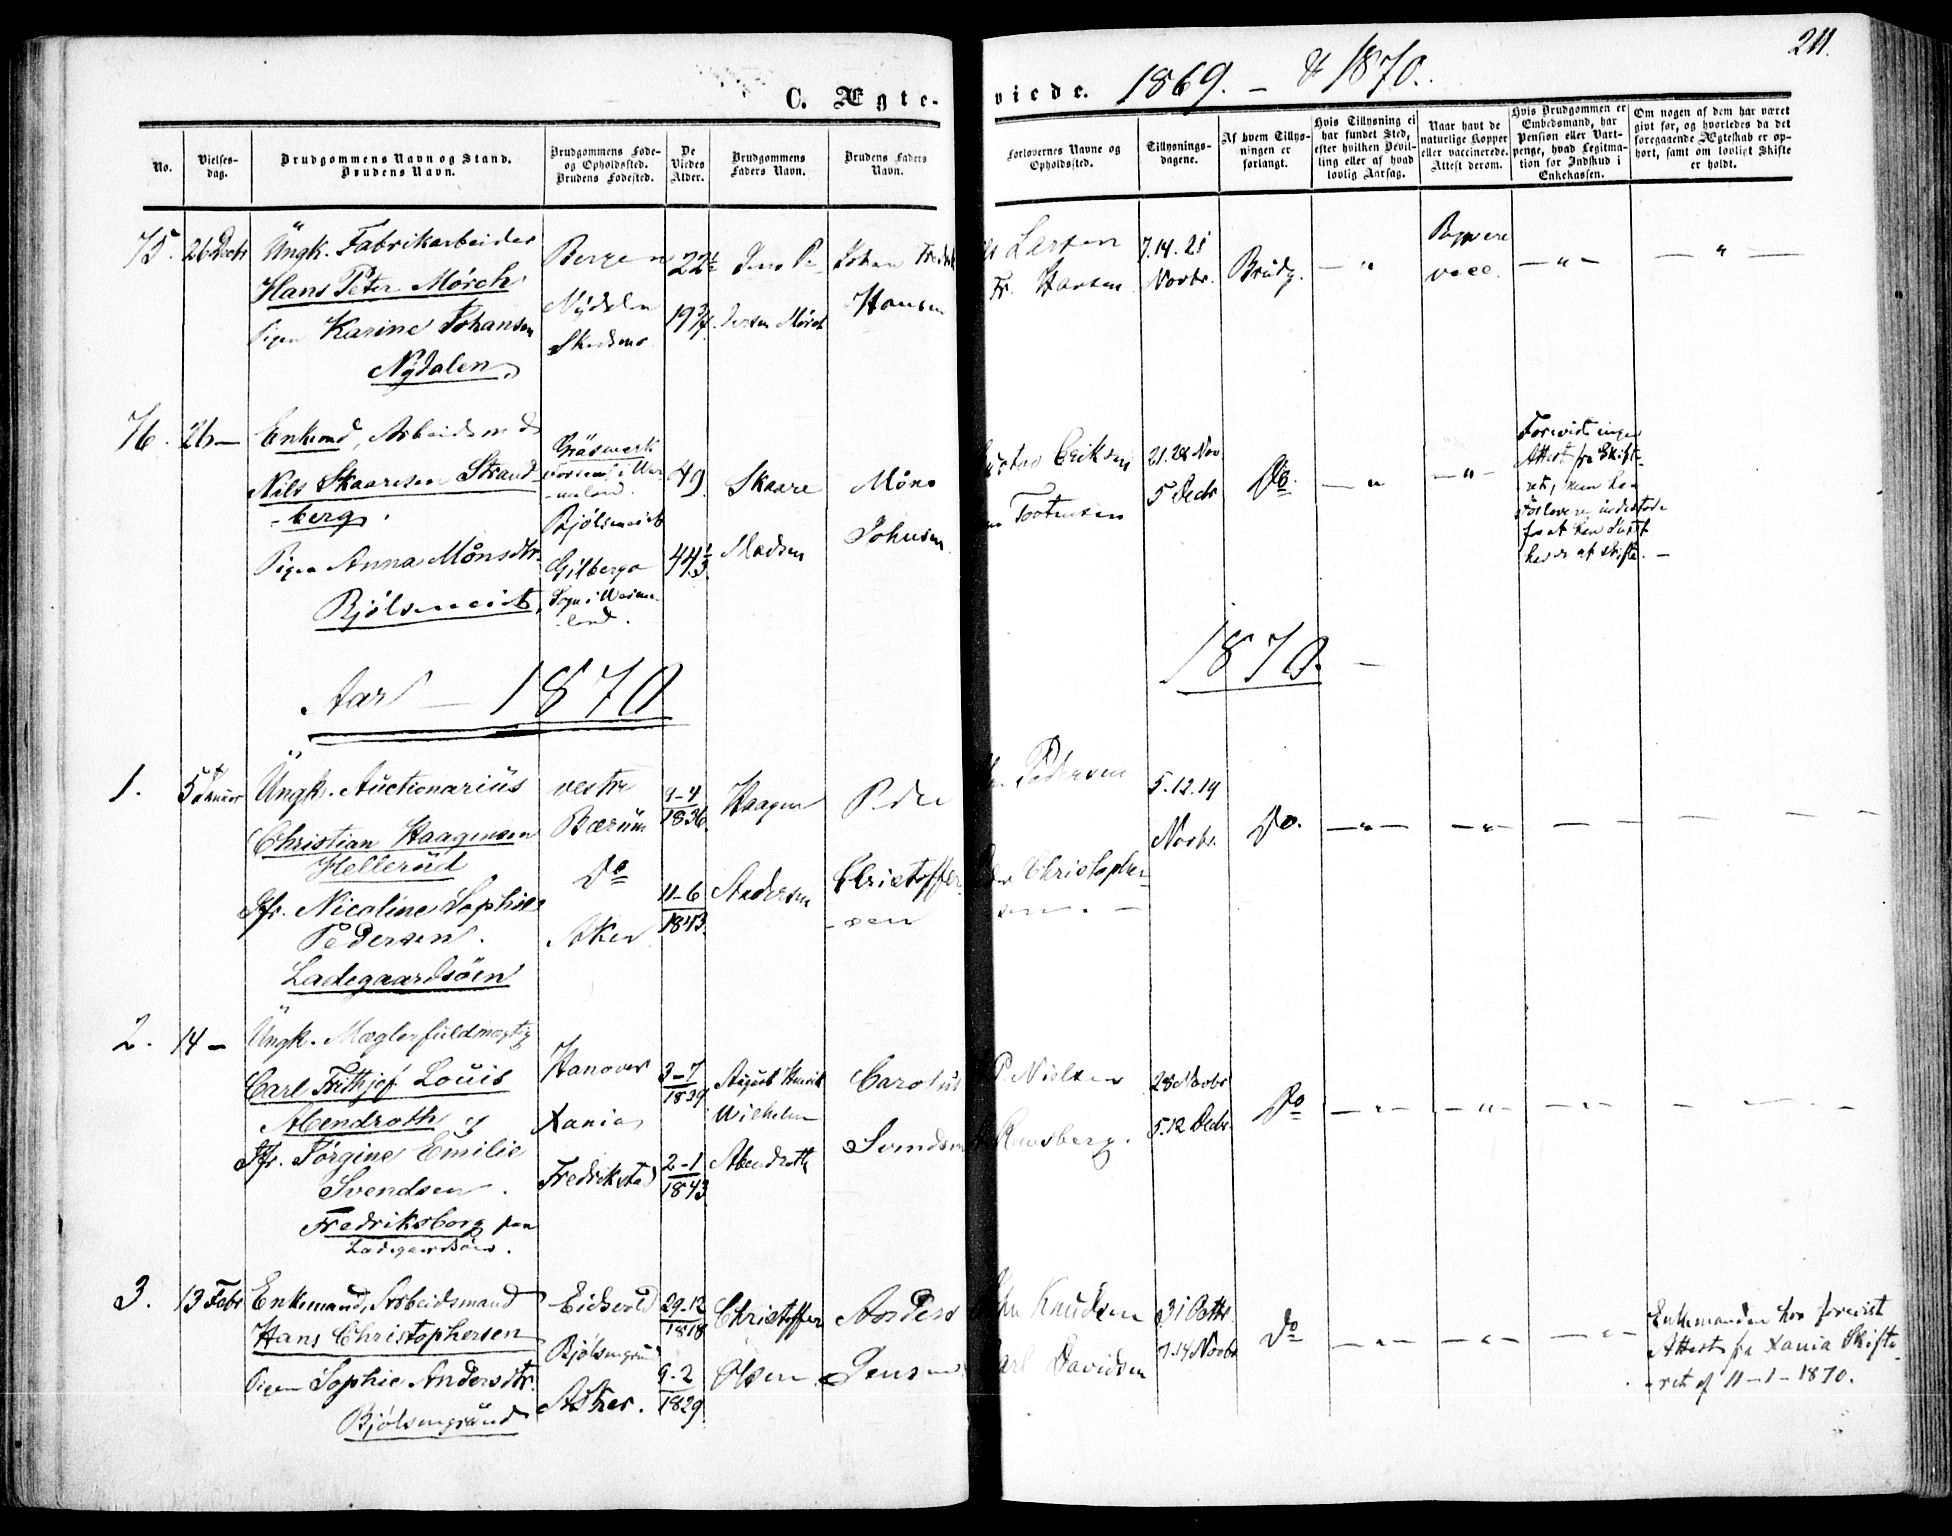 211.
C. Ægte-
viede. 1869. – & 1870.
No.
Vielses-
dag.
Brudgommens Navn og Stand.
Brudens Navn.
Brudgommens Føde-
og Opholdssted.
Brudens Fødested.
De
Viedes
Alder.
Brudgommens
Faders Navn.
Brudens Faders
Navn.
Forlovernes Navne og
Opholdssted.
Tillysnings-
dagene.
Af hvem Tillys-
ningen er
forlangt.
Hvis Tillysning ei
har fundet Sted,
efter hvilken Bevil-
ling eller af hvad
lovlig Aarsag.
Naar havt de
naturlige Kopper
eller vaccinerede.
Attest derom.
Hvis Brudgommen er
Embedsmand, har
Pension eller Vart-
penge, hvad Legitima-
tion for Indskud i
Enkekassen.
Om nogen af dem har været
givt før, og hvorledes da det
foregaaende Ægteskab er op-
hørt, samt om lovligt Skifte
er holdt.
75.
26 Decbr
Ungk. Fabrikarbeider
Hans Peter Mörch
Pigen Karine Johansen
Nydalen
Bergen
Nydalen
Skedsmo
22½
19¾
Jens Pe
Jersen Mörch
Johan Fredrik
Hansen
Larsen
Fr. Hansen
7.14.21
Novbr.
Brudg.
— " 
Begge
vacc.
— " —
— " —
76.
26 —
Enkemd, Arbeidsmd
Nils Skaaresen Strand
-berg.
Pigen Anna Mönsdtr.
Bjölsenveit
Gräsmark
Vermeland.
Bjölsenveit
Gilberga
Sogn i Werme-
-land.
49
44⅓
Skaare
Madsen
Möns
Johnsen
Gustav Eriksen
Tootensen
21.28 Nov
5 Decbr
Do.
— "
— " —
Forevist ingen
Attest fra Skift-
ret, men har
Forlovere indestode
for at han Intet
havde at skifte. —
Aar — 1870
1870. —
1.
5t Januar
Ungk. Auctionarius
Christian Haagensen
Hellerud
Jfr. Nicoline Sophie
Pedersen.
Ladegaardsöen
vestre
Bærum
Do
Aker
9-4
1836.
11-6
1843.
Haagen
Andersen
Peder
Christoffer
-sen
Pedersen
Christopher-
sen. —
5.12.19
Novbr.
Do.
— " —
— " —
— —
— — —
2.
14 –
Ungk. Mæglerfuldmægtig
Carl Frithjof Louis
Abendroth og
Jfr. Jörgine Emilie
Svendsen.
Fredriksborg paa
Ladegaardsöen.
Hanover
Xania
Fredrikstad
3-7
1839
2-1
1843
August Henrik
Wilhelm
Abendroth
Carolus
Svendsen
P Nielsen
Ravsberg.
28 Novbr
5.12 Decbr.
Do
— " —
— " —
— " —
— — —
3.
13 Febr
Enkemand, Arbeidsmand
Hans Christophersen
Pigen Sophie Andersdtr.
Bjölsengrund
Eidsvold
Bjölsengrund
Asker.
29-12
1818
9-2
1829
Christoffer
Olsen
Anders
Jensen
John Knudsen
Carl Davidsen
31 Octbr
7.14 Novbr
Do
— " —
— " —
— " —
Enkemanden har forevist
Attest fra Xania Skifte-
-ret af 11-1-1870.